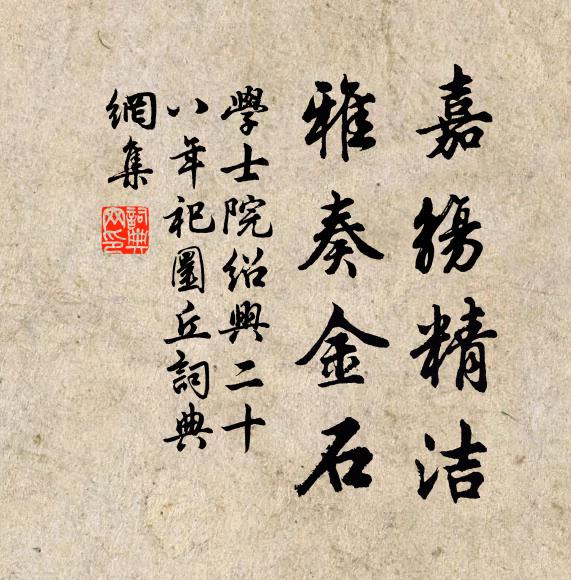 嘉觴精洁
雅奏金石
學士院紹興二十
八年祀圜丘詞典
網集
詞典網印